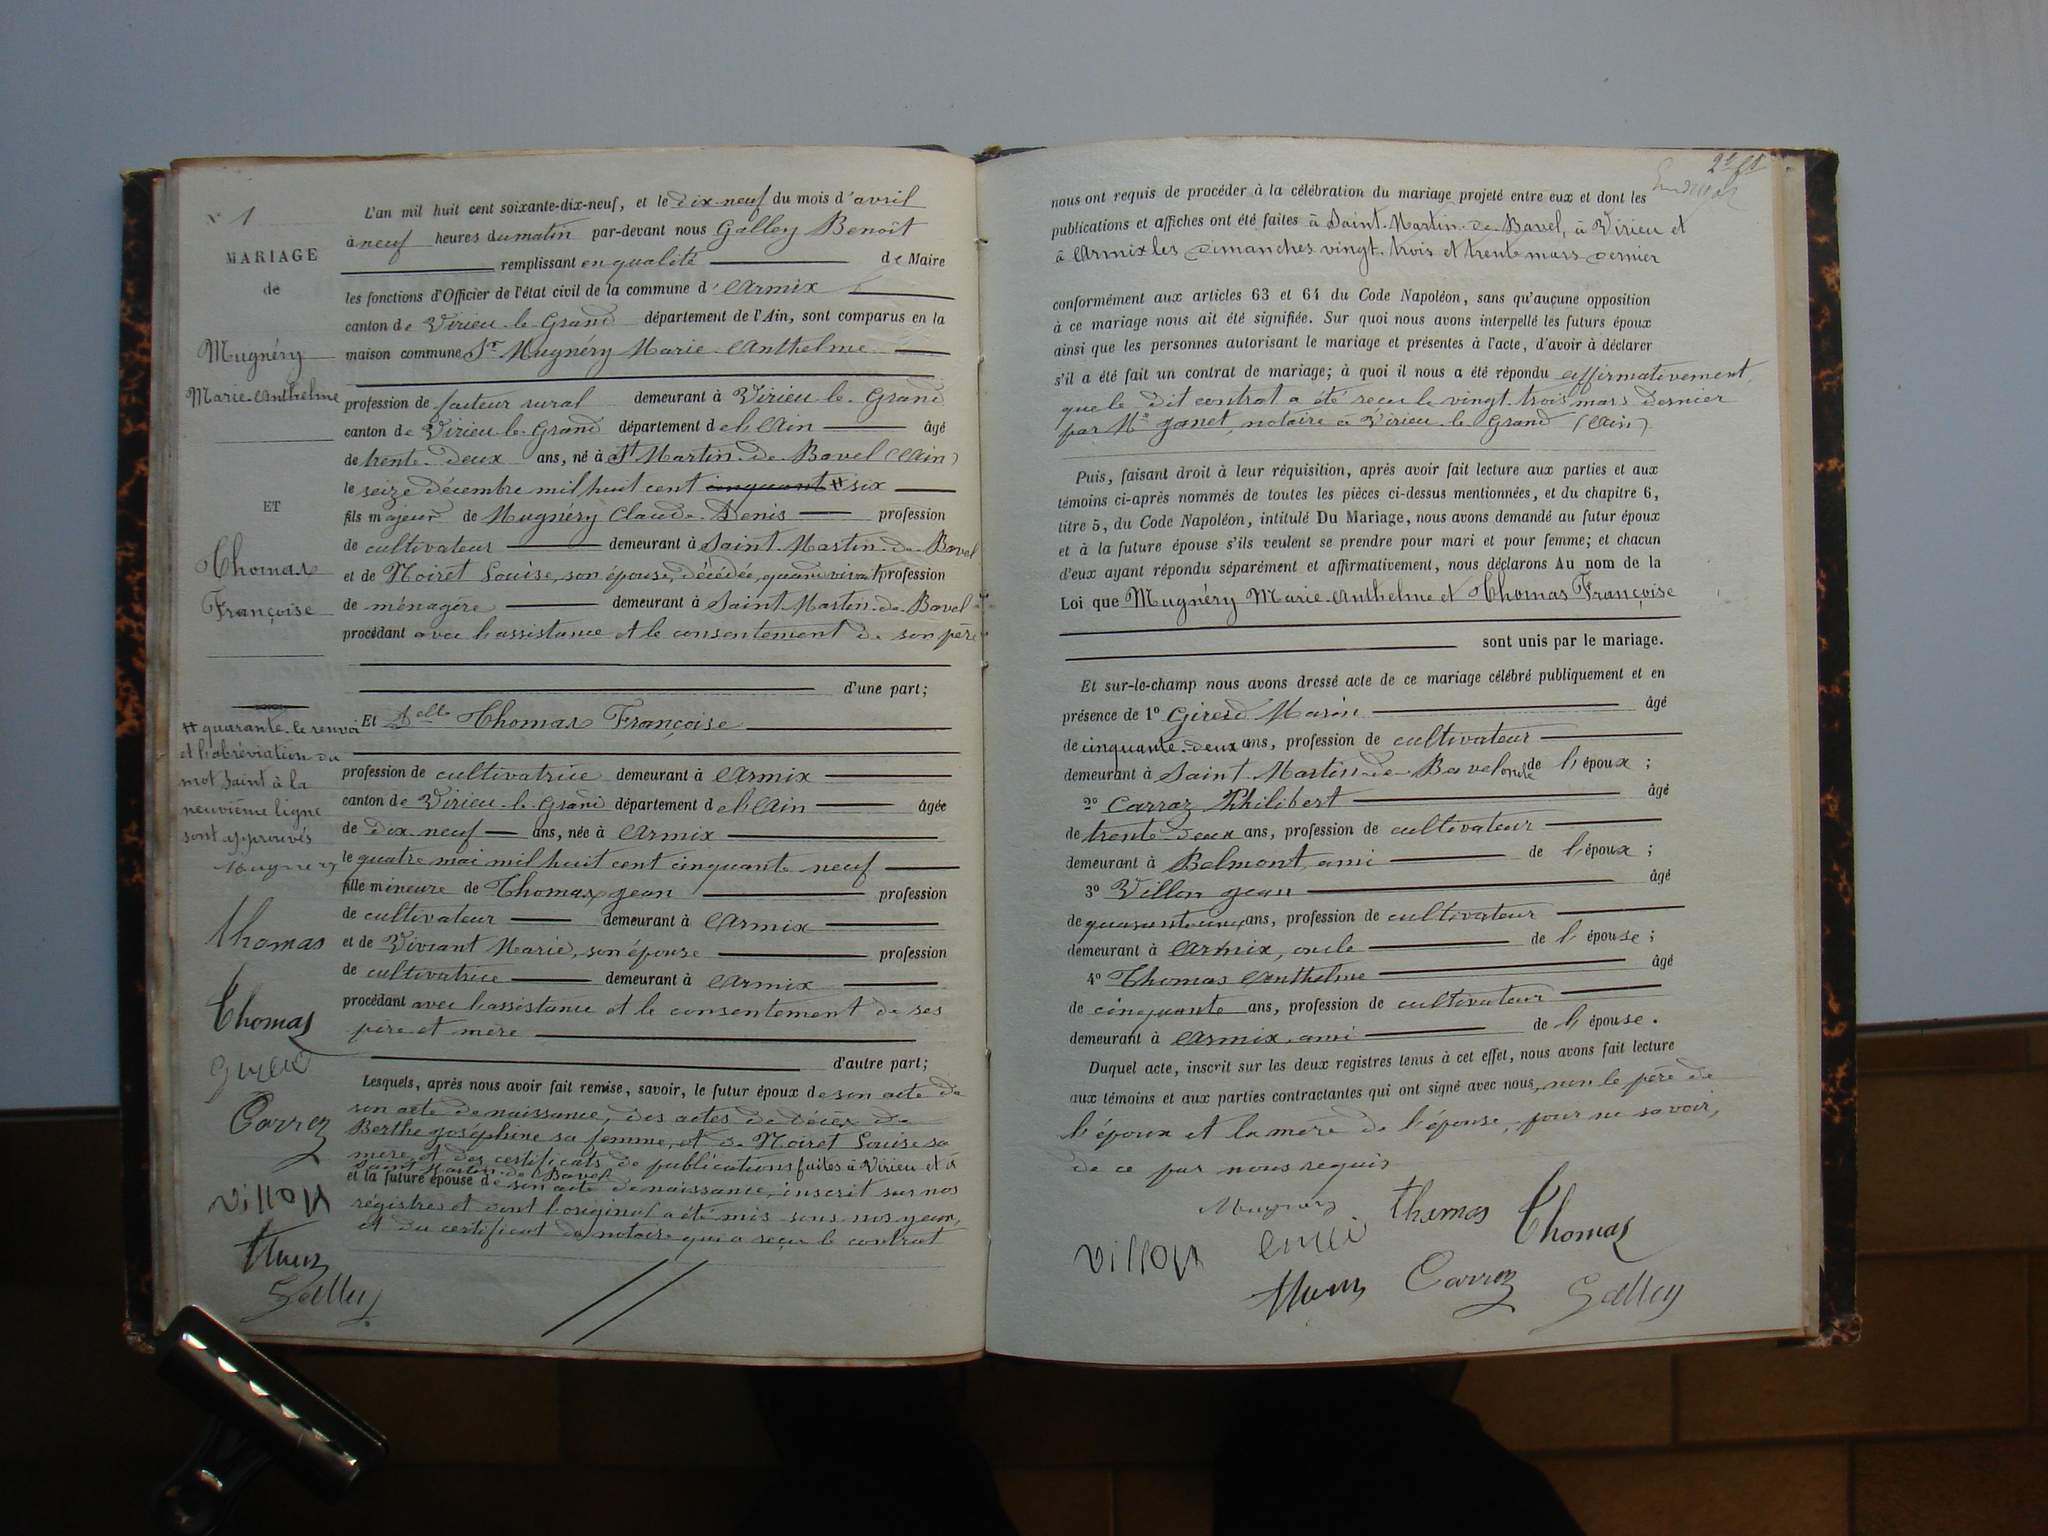 N° 1
MARIAGE
de
Mugnéry
Marie-Anthelme
ET
Thomas
Françoise
# quarante. le renvoi
et l'abréviation du
mot Saint à la
neuvième ligne
sont approuvés
Mugnery
Thomas
Thomas
Carroz
Villon
Galley
L'an mil huit cent soixante-dix-neuf, et le dix-neuf du mois d'avril
à neuf heures du matin par-devant nous Galley Benoît
remplissant en qualité de Maire
les fonctions d'Officier de l'état civil de la commune d'Armix
canton de Virieu-le-Grand département de l'Ain, sont comparus en la
maison commune Sr Mugnéry Marie-Anthelme
profession de facteur rural demeurant à Virieu-le-Grand
canton de Virieu-le-Grand département de l'Ain âgé
de trente-deux ans, né à St Martin-de-Bavel (Ain)
le seize décembre mil huit cent cinquante # six
fils majeur de Mugnéry Claude-Denis profession
de cultivateur demeurant à Saint-Martin-de-Bavel
et de Noiret Louise, son épouse, décédée, quand vivait profession
de ménagère demeurant à Saint-Martin-de-Bavel
procédant avec l'assistance et le consentement de son père
d'une part;
Et Delle Thomas Françoise
profession de cultivatrice demeurant à Armix
canton de Virieu-le-Grand département de l'Ain âgée
de dix-neuf ans, née à Armix
le quatre mai mil huit cent cinquante neuf
fille mineure de Thomas Jean profession
de cultivateur demeurant à Armix
et de Vivant Marie, son épouse profession
de cultivatrice demeurant à Armix
procédant avec l'assistance et le consentement de ses
père et mère
d'autre part;
Lesquels, après nous avoir fait remise, savoir, le futur époux de son acte de
son acte de naissance, des actes de décès de
Berthe Joséphine sa femme, et de Noiret Louise sa
mère et des certificats de publications faites à Virieu et à
Saint-Martin-de-Bavel
et la future épouse de son acte de naissance inscrit sur nos
régistres et dont l'original a été mis sous nos yeux,
et du certificat du notaire qui a reçu le contrat
nous ont requis de procéder à la célébration du mariage projeté entre eux et dont les
publications et affiches ont été faites à Saint-Martin-de-Bavel, à Virieu et
à Armix les dimanches vingt-trois et trente mars dernier
conformément aux articles 63 et 64 du Code Napoléon, sans qu'aucune opposition
à ce mariage nous ait été signifiée. Sur quoi nous avons interpellé les futurs époux
ainsi que les personnes autorisant le mariage et présentes à l'acte, d'avoir à déclarer
s'il a été fait un contrat de mariage; à quoi il nous a été répondu affirmativement,
que le dit contrat a été reçu le vingt-trois mars dernier
par Me Janet, notaire à Virieu-le-Grand (Ain)
Puis, faisant droit à leur réquisition, après avoir fait lecture aux parties et aux
témoins ci-après nommés de toutes les pièces ci-dessus mentionnées, et du chapitre 6,
titre 5, du Code Napoléon, intitulé Du Mariage, nous avons demandé au futur époux
et à la future épouse s'ils veulent se prendre pour mari et pour femme; et chacun
d'eux ayant répondu séparément et affirmativement, nous déclarons Au nom de la
Loi que Mugnéry Marie-Anthelme et Thomas Françoise
sont unis par le mariage.
Et sur-le-champ nous avons dressé acte de ce mariage célébré publiquement et en
présence de 1° Girerd Marin âgé
de cinquante-deux ans, profession de cultivateur
demeurant à Saint-Martin-de-Bavel oncle de l'époux;
2° Carroz Philibert âgé
de trente-deux ans, profession de cultivateur
demeurant à Belmont, ami de l'époux;
3° Villon Jean âgé
de quarante-cinq ans, profession de cultivateur
demeurant à Armix, oncle de l'épouse;
4° Thomas Anthelme âgé
de cinquante ans, profession de cultivateur
demeurant à Armix, ami de l'épouse.
Duquel acte, inscrit sur les deux registres tenus à cet effet, nous avons fait lecture
aux témoins et aux parties contractantes qui ont signé avec nous, non le père de
l'époux et la mère de l'épouse, pour ne savoir,
de ce par nous requis
Mugnery Thomas Thomas
Villon
Carroz Galley